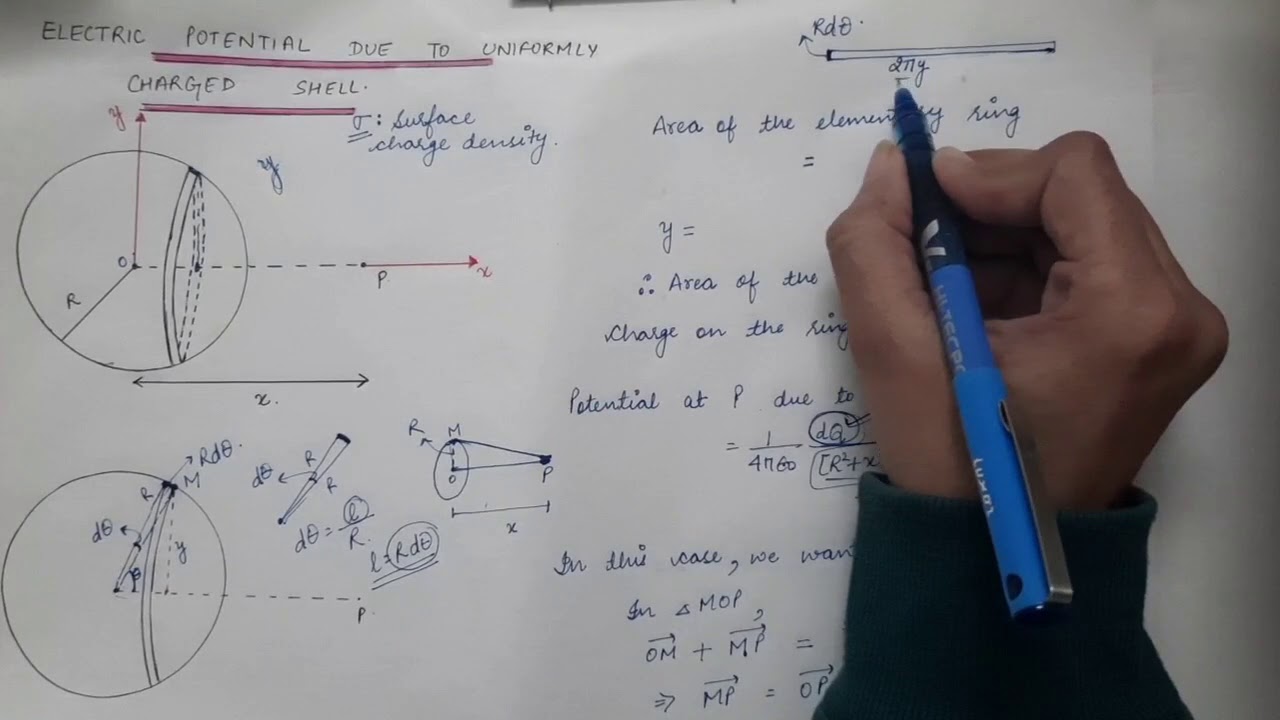 ELECTRIC POTENTIAL DUE TO UNIFORMLY
CHARGED SHELL.
σ: Surface
charge density.
y
y
O
R
P
x
x.
Rdθ.
R
M
dθ
y
φ
P.
dθ
R
R
dθ = l/R.
l = Rdθ
R
M
O
P
x
Rdθ.
2πy
Area of the elementary ring
=
y =
∴ Area of the
Charge on the ring
Potential at P due to
= 1/4πϵ0 dQ/[R²+x
In this case, we wan
In △MOP,
OM→ + MP→ =
⇒ MP→ = OP→
HI-TECPO
LUXOR